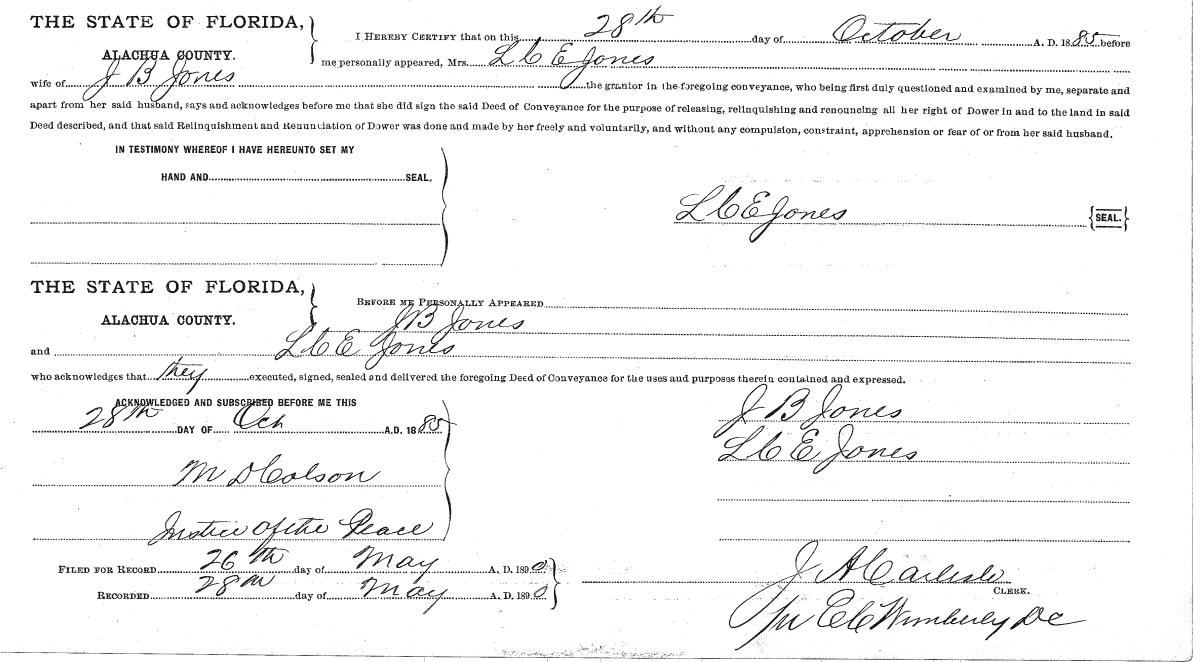 THE STATE OF FLORIDA,
ALACHUA COUNTY.
I HEREBY CERTIFY that on this 28th day of October A. D. 1885 before
me personally appeared, Mrs. L C E Jones
wife of J B Jones the grantor in the foregoing conveyance, who being first duly questioned and examined by me, separate and
apart from her said husband, says and acknowledges before me that she did sign the said Deed of Conveyance for the purpose of releasing, relinquishing and renouncing all her right of Dower in and to the land in said
Deed described, and that said Relinquishment and Renunciation of Dower was done and made by her freely and voluntarily, and without any compulsion, constraint, apprehension or fear of or from her said husband.
IN TESTIMONY WHEREOF I HAVE HEREUNTO SET MY
HAND AND SEAL.
L C E Jones {SEAL.}
THE STATE OF FLORIDA,
ALACHUA COUNTY.
BEFORE ME PERSONALLY APPEARED
J B Jones
and L C E Jones
who acknowledges that they executed, signed, sealed and delivered the foregoing Deed of Conveyance for the uses and purposes therein contained and expressed.
ACKNOWLEDGED AND SUBSCRIBED BEFORE ME THIS
28th DAY OF Oct A.D. 1885
M D Colson
Justice of the Peace
J B Jones
L C E Jones
FILED FOR RECORD 26th day of May A. D. 1890
RECORDED 28th day of May A. D. 1890
J A Carlisle
CLERK.
Wimberly DC